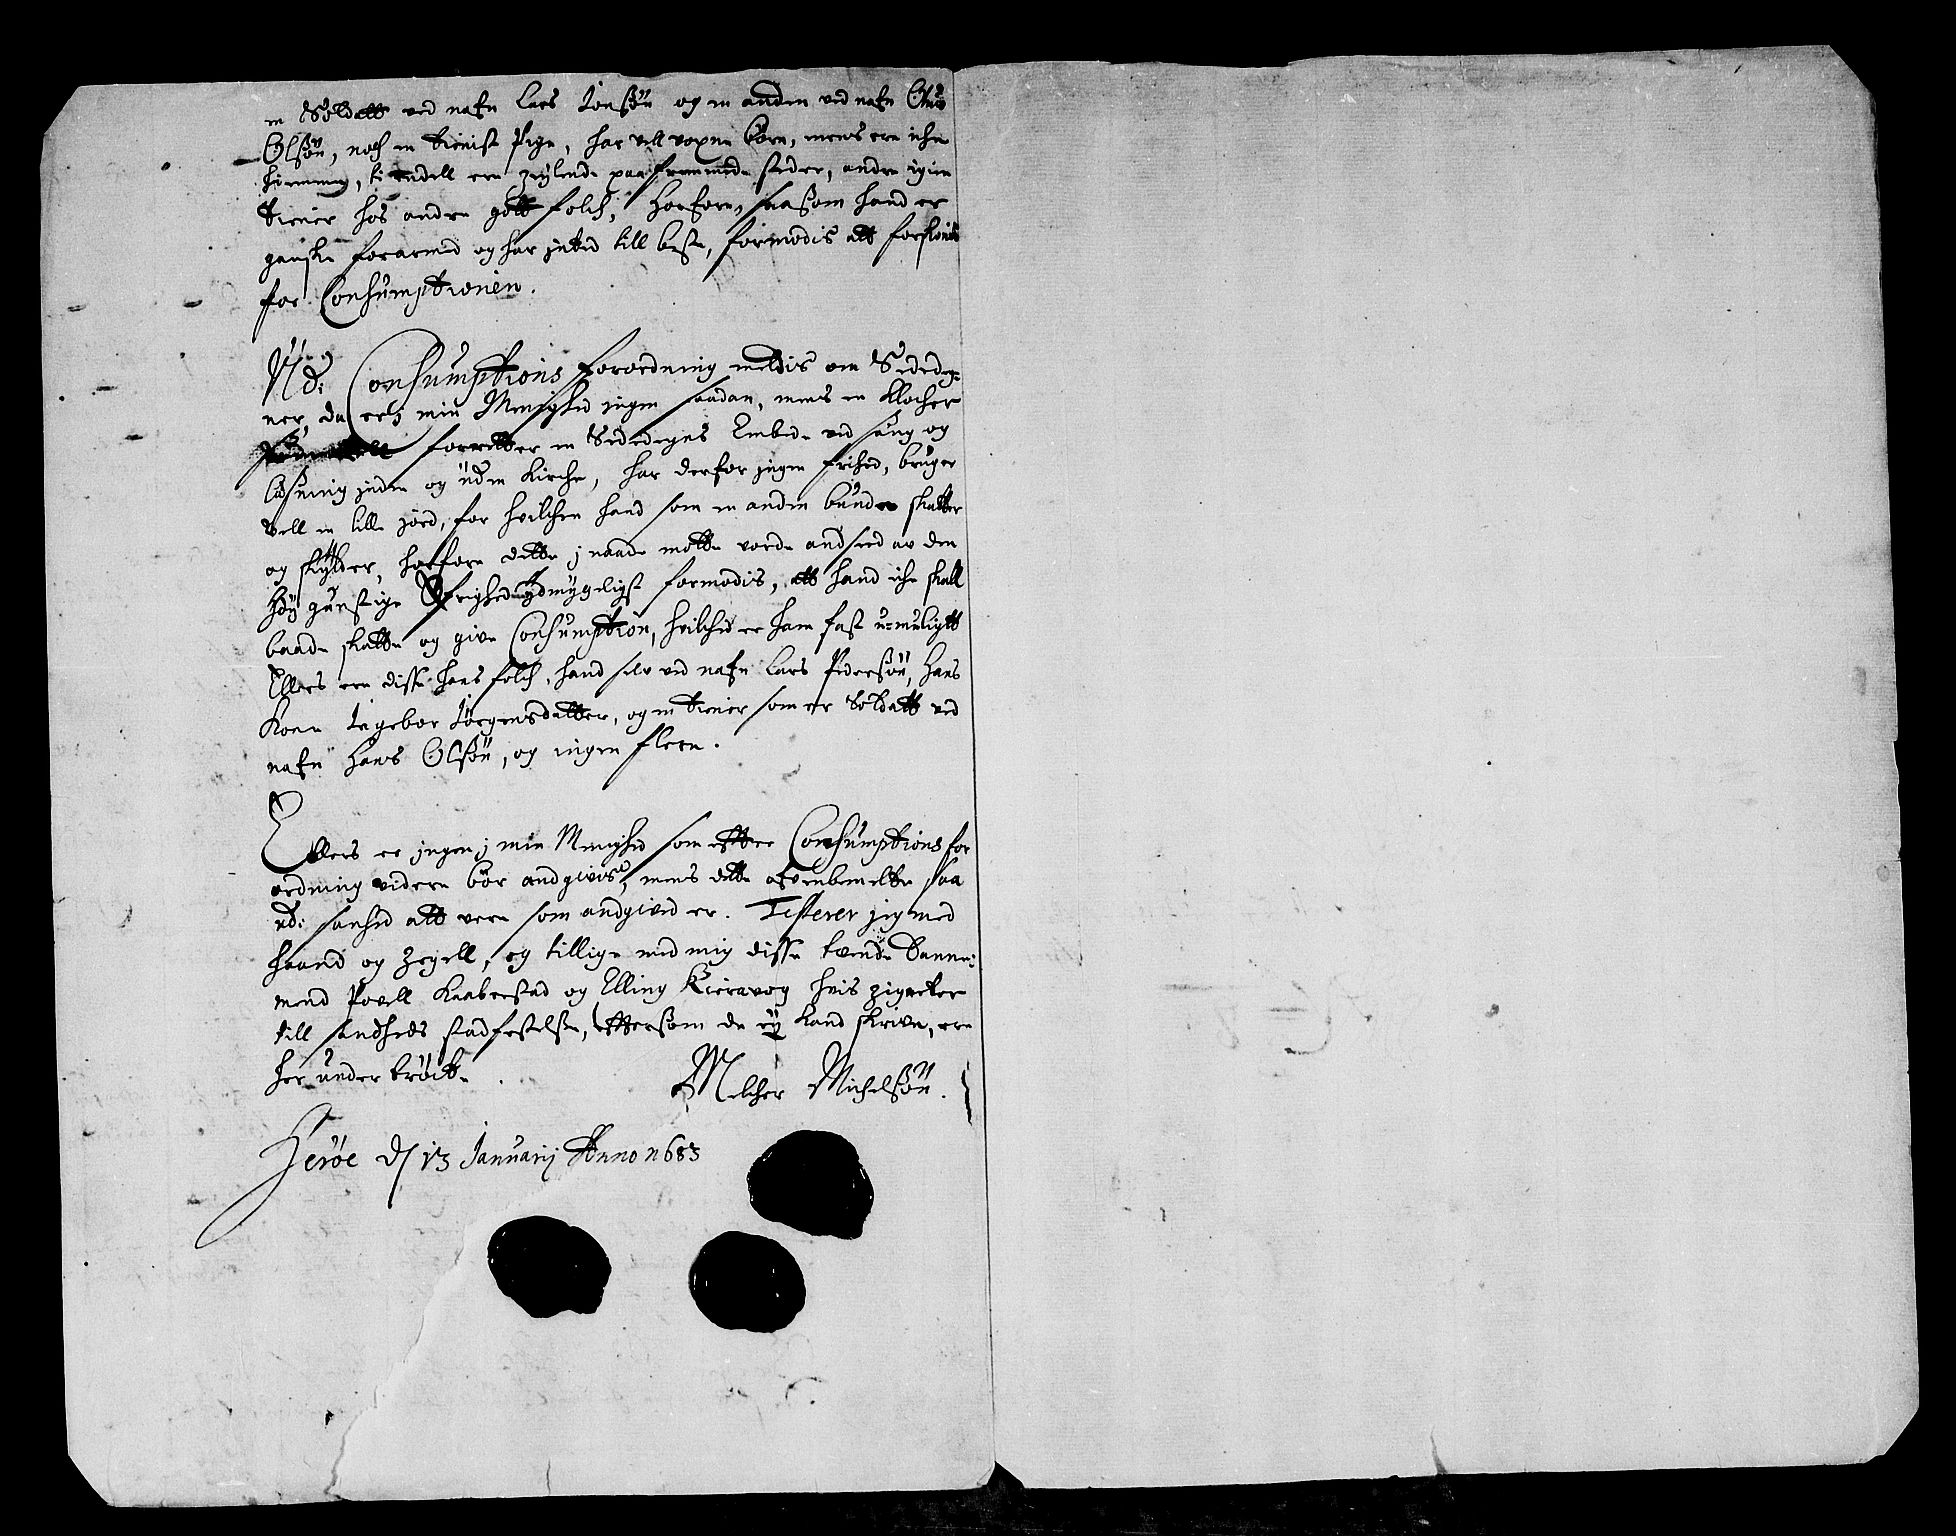 en Soldatt ved nafn Lars Jonssøn og en anden ved nafn Oluf
Olssøn, noch en tieniste Pige, har vell voxne børn, mens ere iche
hiemme, ti endell ere zeylende paa fremmede steder, andre igien
tiener hos andre gått folch, Horfore, saasom hand er
ganske forarmed og har inted till beste, formodis att forskonis
for Consumptionen.
Ud: Consumptions forordning meldis om Sededeg-
ner, da er j min Menighed ingen saadan, mens en Klocher
forretter en Sededegns Embede ved sang og
læsning inden og uden Kirche, har derfor ingen frihed, bruger
vell en lille jord, for hvilchen hand som en anden bunde skatter
og skylder, horfore dette j naade motte vorde andseed av den
Høy gunstige Øfrighed, ydmygeligst formodis, att hand iche skall
baade skatte og give Consumption, hvilched er ham fast u-muligtt
Ellers ere disse hans folch, hand selv ved nafn Lars Pederssøn, Hans
Kone Ingebor Jørgensdatter, og en tiener som er Soldatt ved
nafn Hans Olssøn, og ingen flere.
Ellers er ingen j min Menighed som efter Consumptions for
ordning videre bør andgivis, mens dette ofvenbemelte saa
ud: sanhed att vere som andgived er. Testerer jeg med
haand og zegell, og tillige med mig disse tvende Danne-
mend Povell Kaaberstad og Elling Kieravog hvis zigneter
till sandheds stadfestelse, eftersom de ey kand skrive, ere
her under trøcte.
Melcher Michelssøn.
Herøe d/ 13 Januarij Anno 1683